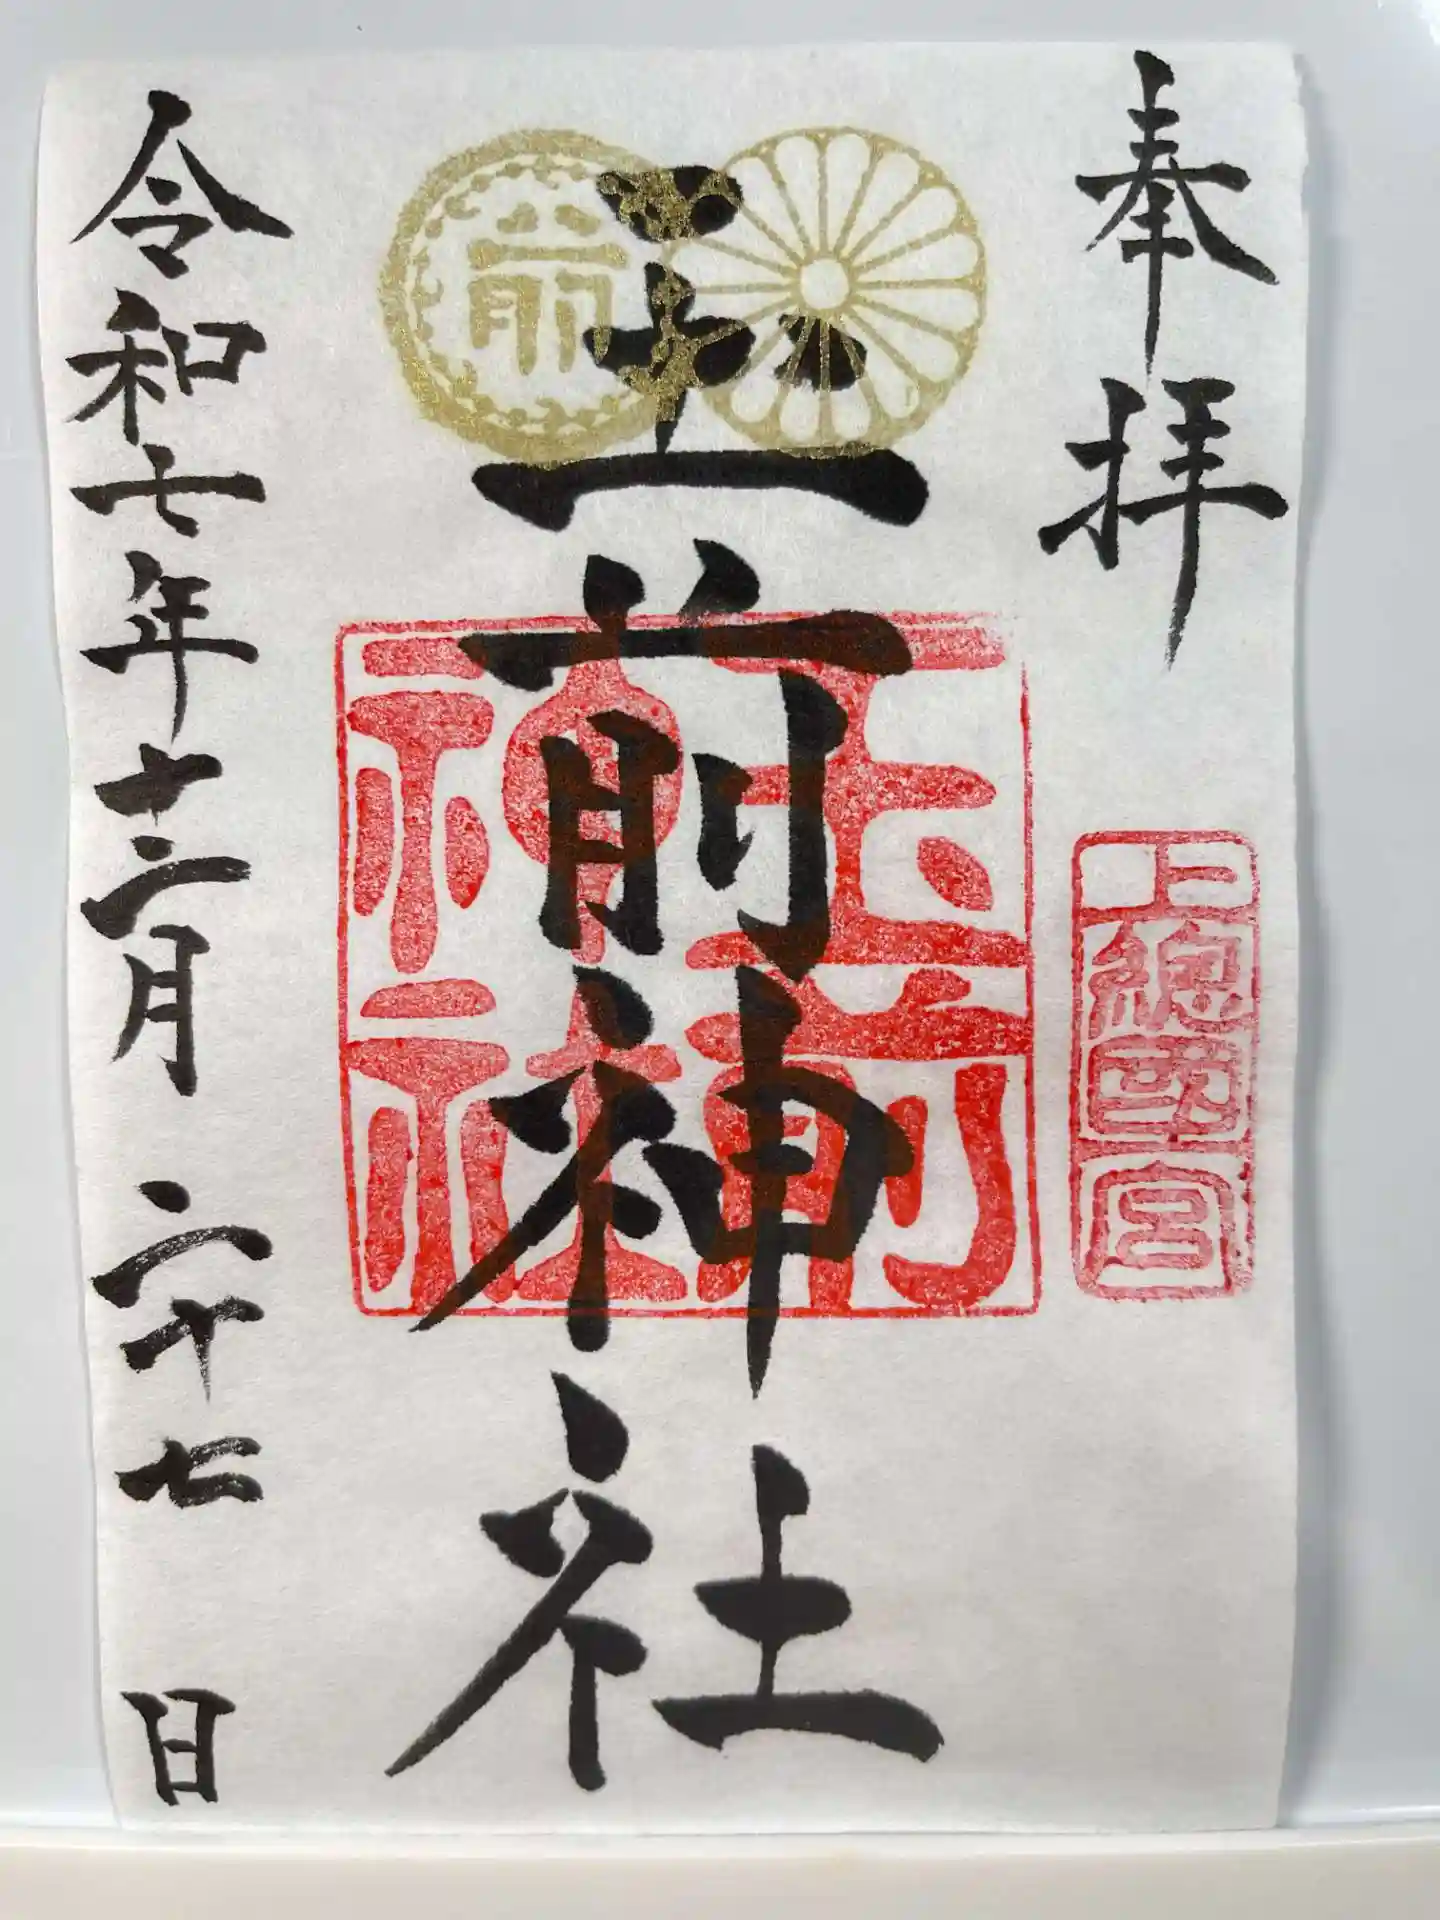 奉拝
上總國一宮
玉前神社
前
玉前神社
令和七年十二月二十七日